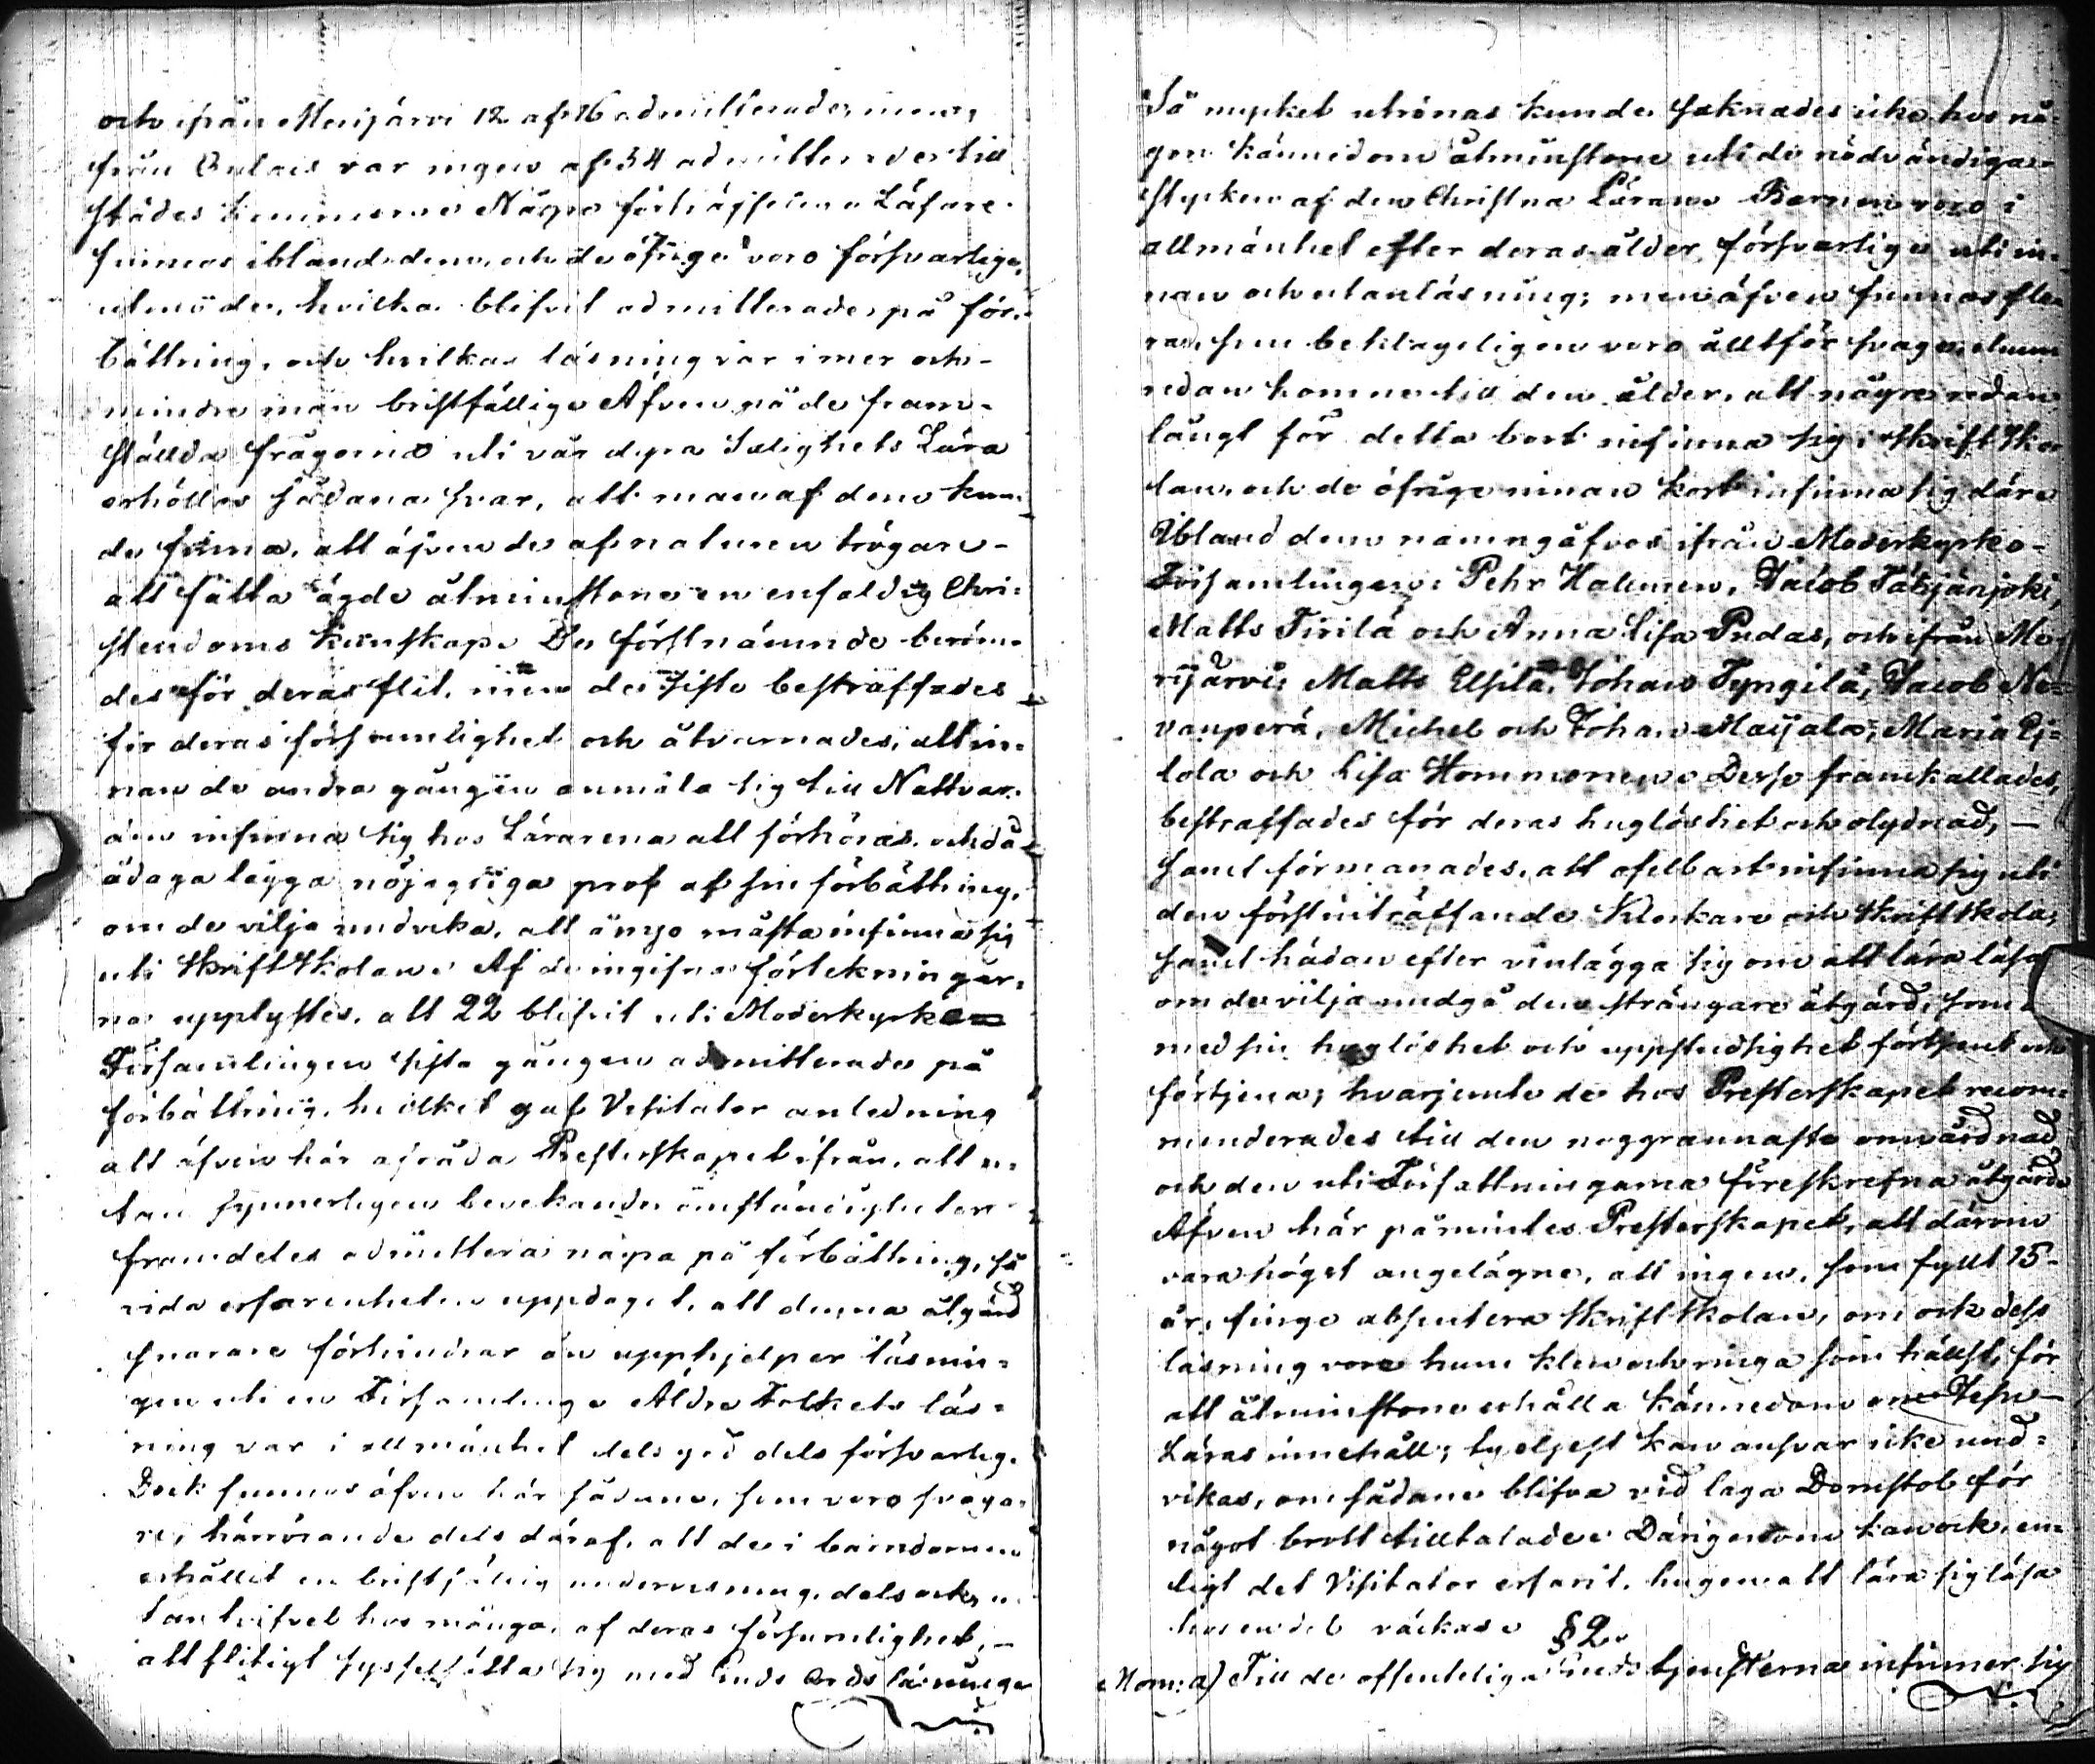 och ifrån Merijärvi 12 af 16 admitterade; men
från Oulais var ingen af 54 admitterader till
städes kommen. Några förträffelina Läsare
funnos ibland dem, och de öfrige voro försvarlige,
utom de, hvilka blifvit admitterade på för-
bättring, och hvilkas läsning var i mer och
mindre mån bristfällig. Äfven på de fram-
ställda frågorna uti vår dyra Salighets Lära
erhöllos sådana svar, att man af dem kun-
de finna, att äfven de af naturen trögare
att fatta ägde åtminstone en enfaldig Chri-
stendoms kunskap. De förstnämnde beröm-
des för deras flit, men de siste bestraffades
för deras försumlighet och åtvarnades, att in-
nan de andra gången anmäla sig till Nattvar-
den infinna sig hos Lärarena att förhöras, och då
ådaga lägga nöjagtiga prof af sin förbättring,
om de vilja undvika, att ånyo måsta infinna sig
uti Skriftskolan. Af de ingifna förtekningar-
na upplystes, att 22 blifvit uti Moderkyrko
Församlingen sista gången admitterade på
förbättring, hvilket gaf Visitator anledning
att äfven här afråda Presterskapet ifrån, att u-
tan synnerligen bevekande omständigheter
framdeles admittera några på förbättring, så
vida erfarenheten uppdagat, att denna åtgärd
snarare förhindrar än upphjelper läsnin-
gen uti en Församling. Äldre Folkets läs-
ning var i allmänhet dels god dels försvarlig.
Dock funnos äfven här sådane, som voro svaga-
re, härrörande dels däraf, att de i barndomen
erhållit en bristfällig undervisning, dels ock u-
tan tvifvel hos många, af deras försumlighet,
att flitigt sysselsätta sig med Guds Ords läsning.
Så mycket utrönas kunde, saknades icke hos nå-
gon kännedom åtminstone uti de nödvändigas-
te stycken af den Christna Läran. Barnen voro i
allmänhet efter deras ålder försvarlige uti in-
nan och utanläsning; men äfven funnos fle-
ra, som beklageligen voro alltför svage, ehuru
redan komne till den ålder, att några redan
långt för detta bort infinna sig i Skriftsko-
lan, och de öfrige innan kort infinna sig däre.
Ibland dem namngåfvos ifrån Moderkyrko-
Församlingen: Pehr Halunen, Jacob Tähjänjoki,
Matts Tirilä och Anna Lisa Pudas, och ifrån Me-
rijärvi; Matts Elsilä, Johan Tyngilä, Jacob Ne-
vanperä, Michel och Johan Maijala, Maria Ej-
lola och Lisa Hommonen. Desse framkallades,
bestraffades för deras huglöshet och olydnad,
samt förmanades, att ofelbart infinna sig uti
den först inträffande Klockare och Skriftskola;
samt hädan efter vinlägga sig om att lära läsa
om de vilja undgå den strängare åtgärd, som
med sin huglöshet och uppstudsighet förtjent och
förtjena; hvarjemte de hos Presterskapet recom-
menderades till den noggrannaste omvårdnad
och den uti Författningarna föreskrefna åtgärd.
Äfven här påmintes Presterskapet, att därom
vara högst angeläget, att ingen, som fyllt 15
år, finge absentera Skriftskolan, om ock dess
läsning vore hum klen och ringa som hällst, för
att åtminstone erhålla kännedom om Jesu
Läras innehåll; ty eljest kan ansvar icke und-
vikas, om sådane blifva vid laga Domstol för
något brott tilltalade. Därigenom kan ock, en-
ligt det Visitator erfarit, hugen att lära sig läsa
hos en del väckas.
§ 2.
Mom: a) Till de offentliga Guds tjensterna infinner sig